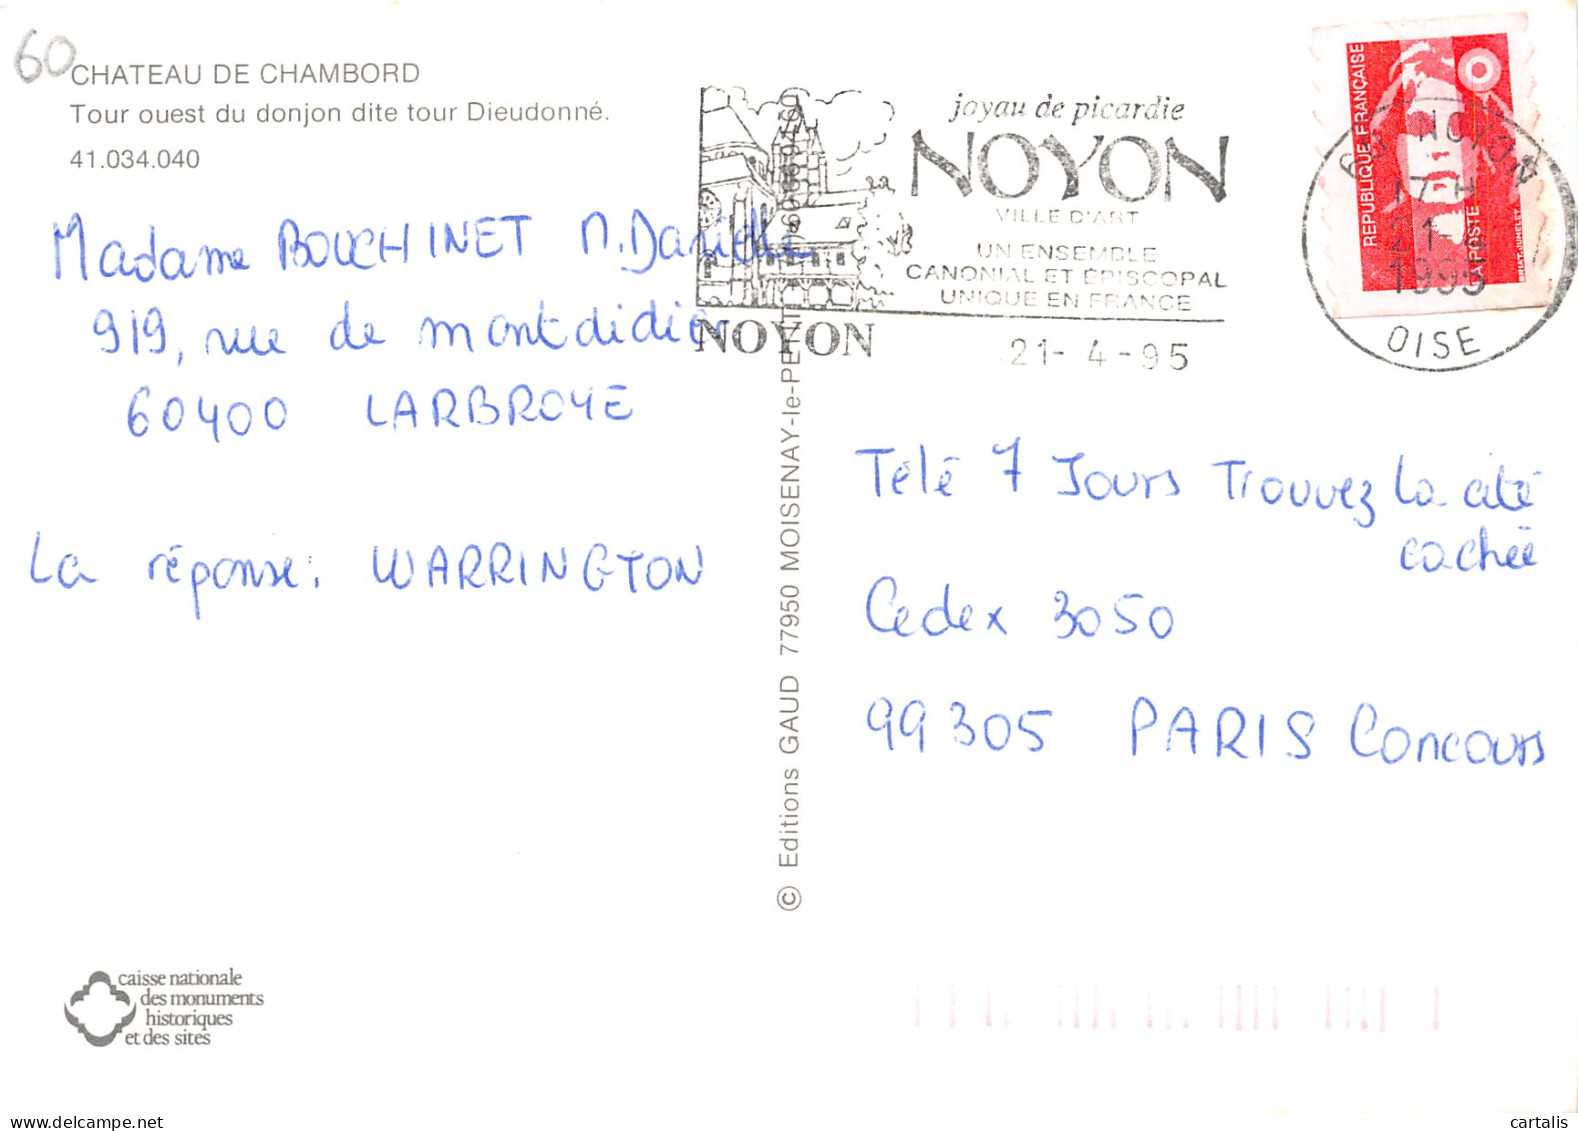 60
CHATEAU DE CHAMBORD
Tour ouest du donjon dite tour Dieudonné.
41.034.040
joyau de picardie
NOYON
VILLE D'ART
UN ENSEMBLE
CANONIAL ET ÉPISCOPAL
UNIQUE EN FRANCE
NOYON
21- 4 -95
REPUBLIQUE FRANÇAISE
LA POSTE
60 NOYON
17 H
21 4
1995
OISE
Madame BOUCHINET M. Danielle
919, rue de montdidier
60400 LARBROYE
La réponse: WARRINGTON
© Editions GAUD 77950 MOISENAY-le-PETIT
Télé 7 Jours Trouvez la cité
cachée
Cedex 3050
99305 PARIS Concours
caisse nationale
des monuments
historiques
et des sites
cartalis
www.delcampe.net